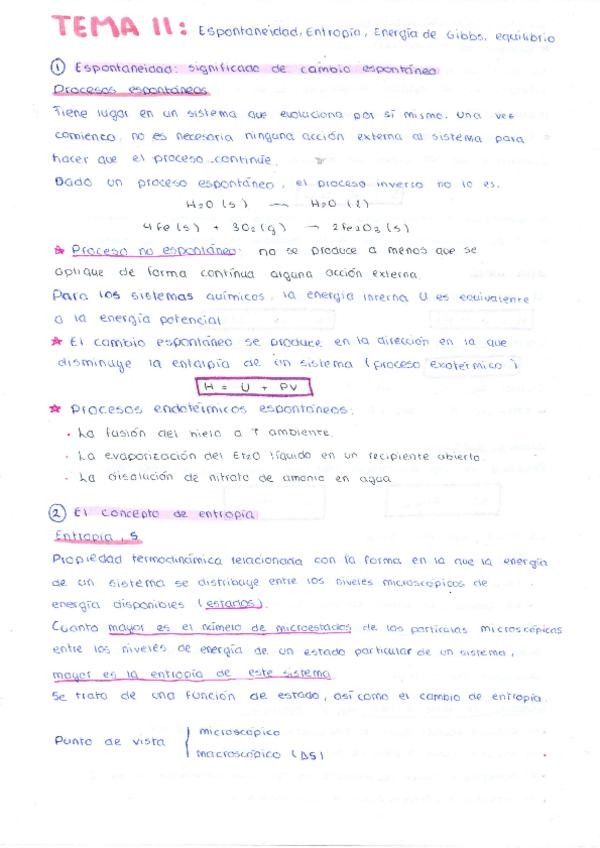 TEMA 11: Espontaneidad, Entropía, Energía de Gibbs, equilibrio
① Espontaneidad: significado de cambio espontáneo
Procesos espontáneos
Tiene lugar en un sistema que evoluciona por sí mismo. Una vez
comienza, no es necesaria ninguna acción externa al sistema para
hacer que el proceso continúe.
Dado un proceso espontáneo, el proceso inverso no lo es.
H2O (s) → H2O (l)
4Fe (s) + 3O2 (g) → 2Fe2O3 (s)
★ Proceso no espontáneo: no se produce a menos que se
aplique de forma continua alguna acción externa.
Para los sistemas químicos, la energía interna U es equivalente
a la energía potencial
★ El cambio espontáneo se produce en la dirección en la que
disminuye la entalpía de un sistema (proceso exotérmico)
H = U + PV
★ Procesos endotérmicos espontáneos:
· La fusión del hielo a T ambiente.
· La evaporización del Et2O líquido en un recipiente abierto.
· La disolución de nitrato de amonio en agua
② El concepto de entropía
Entropía, S
Propiedad termodinámica relacionada con la forma en la que la energía
de un sistema se distribuye entre los niveles microscópicos de
energía disponibles (estados).
Cuanto mayor es el número de microestados de las partículas microscópicas
entre los niveles de energía de un estado particular de un sistema,
mayor es la entropía de este sistema
Se trato de una función de estado, así como el cambio de entropía.
Punto de vista { microscópico
macroscópico (ΔS)